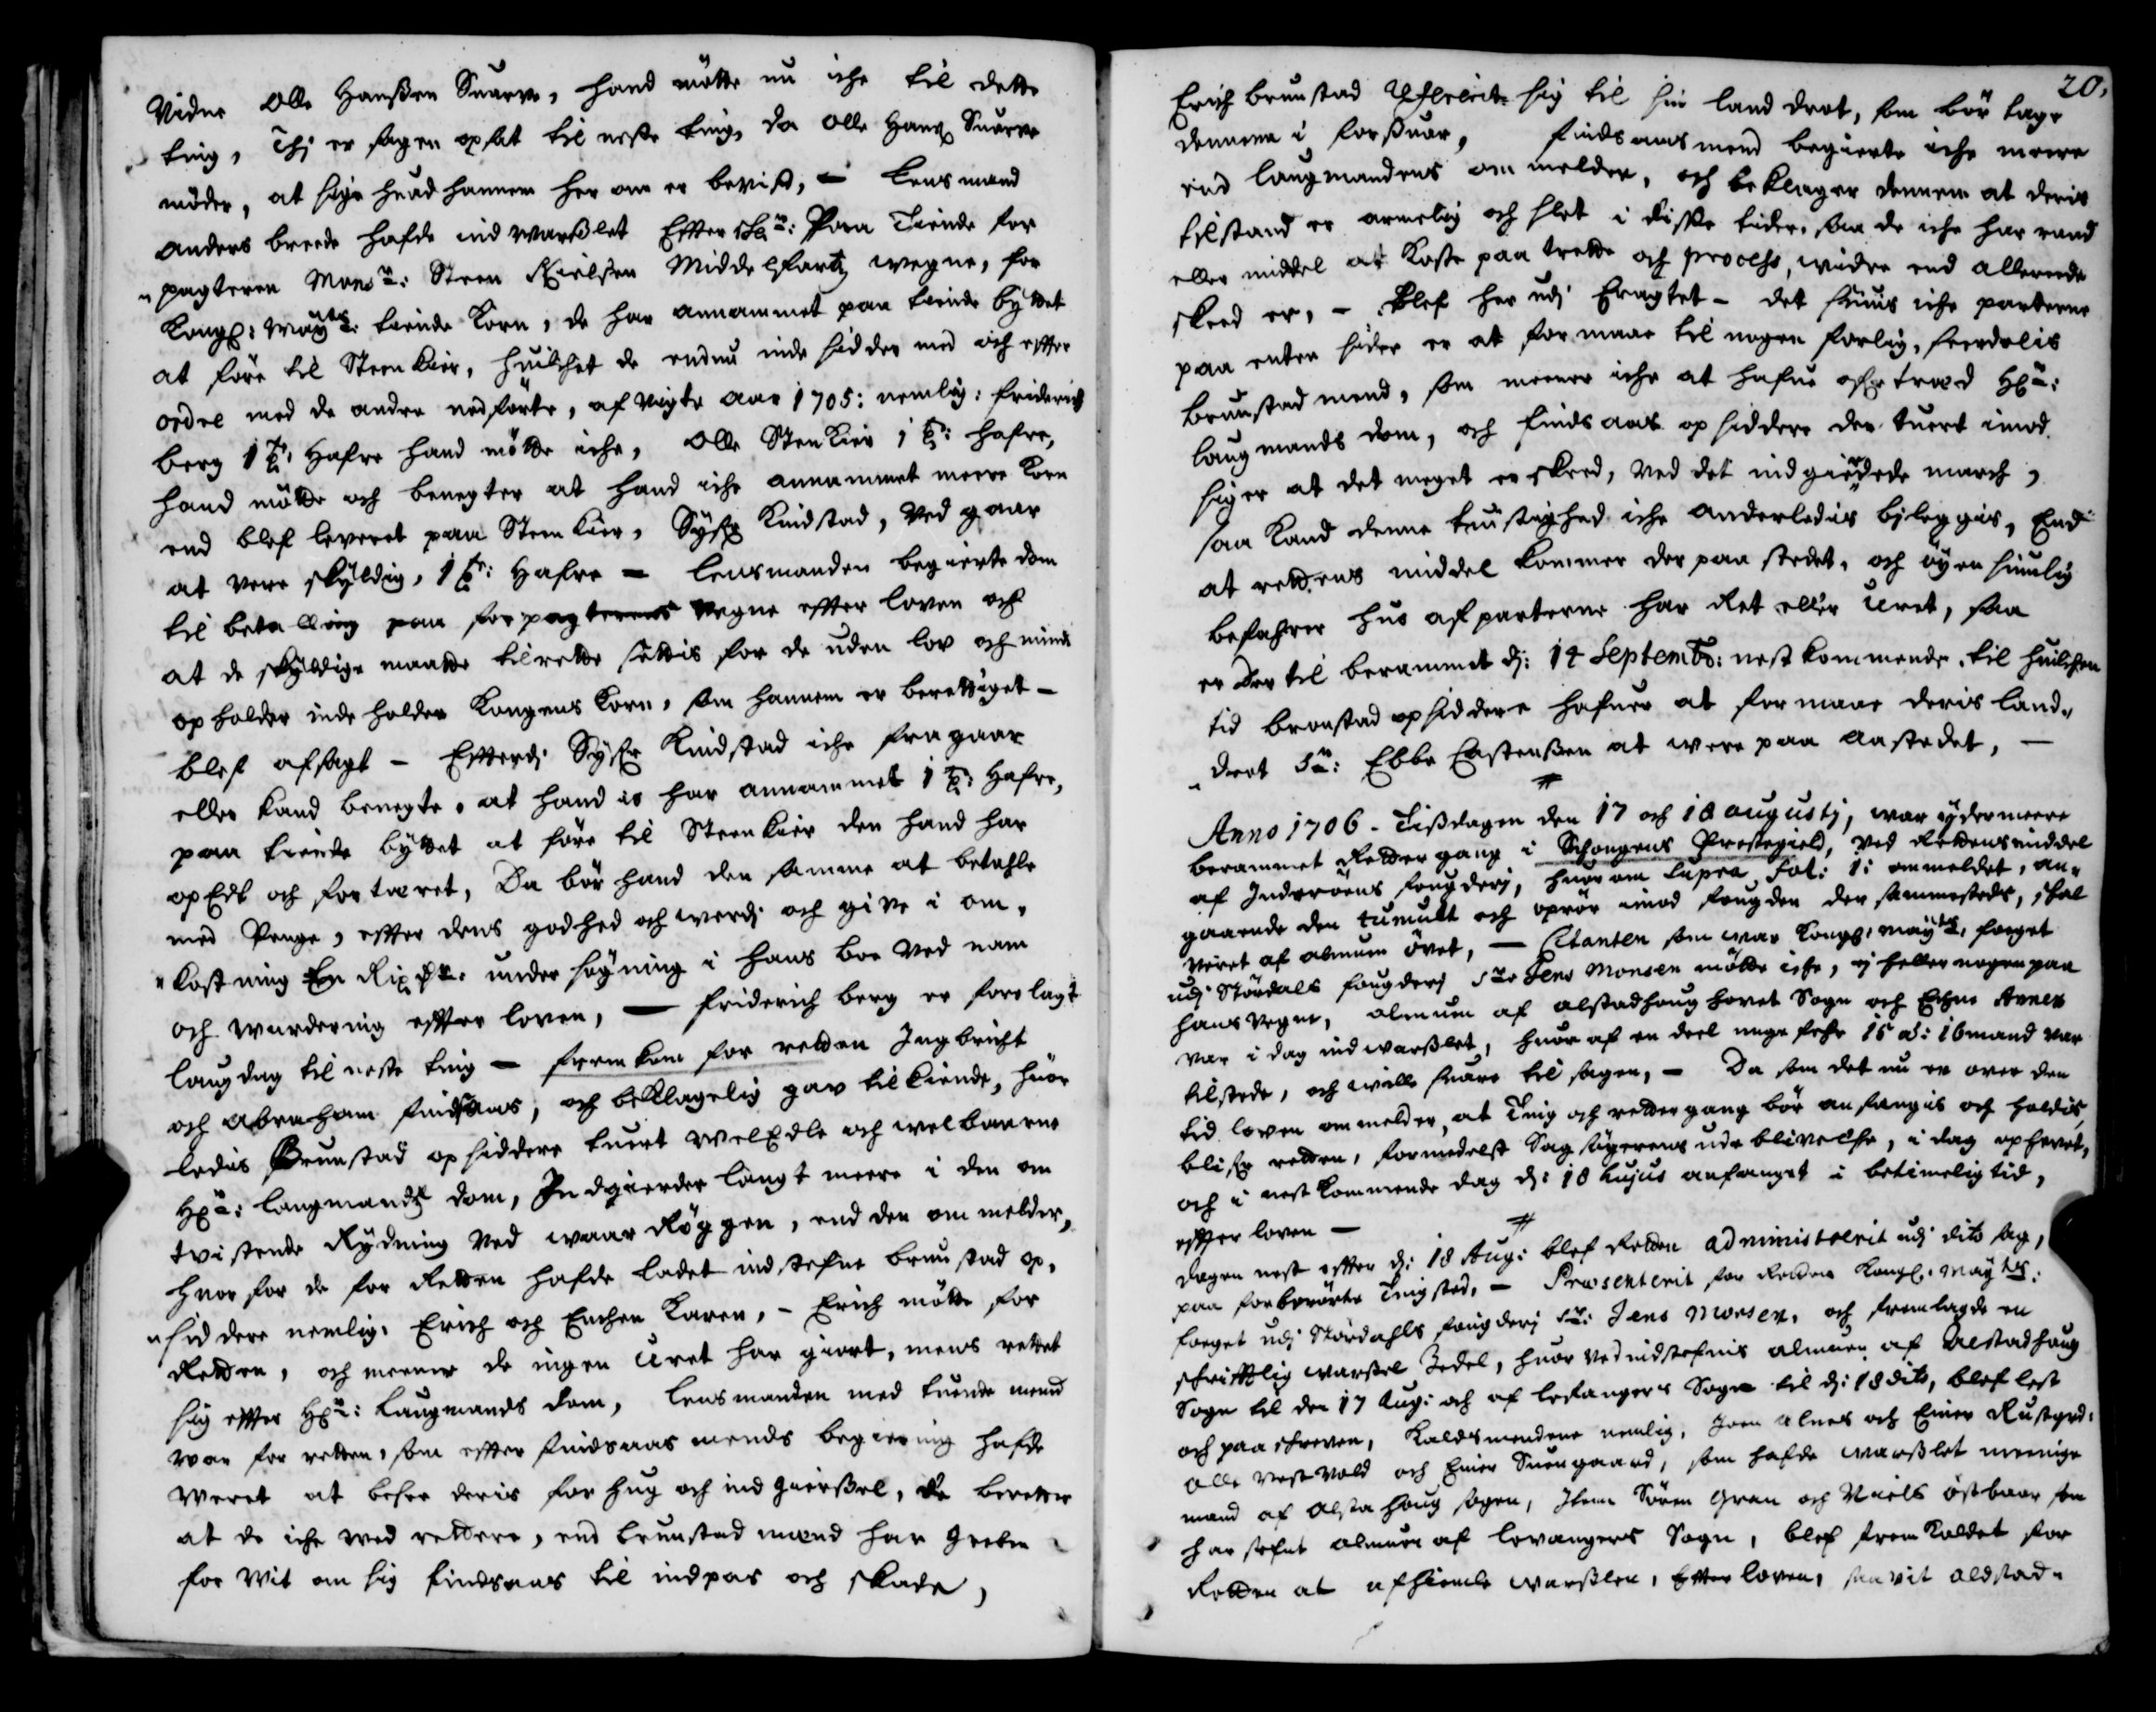 Vidne Olle Hanßen Snarve, hand mötte nu iche til dette
ting, Thj er sagen opsat til neste ting, da Olle Hans: Snarve
möder, at sige huad hannem her om er bevist, – Lensmand
anders breede hafde indvarßlet Effterschr: Paa Tiende for
"pagteren Monsr: Steen Nielsen Middelfartz wegne, for
Kongl: Maytz: tiende Korn, de har annammet paa tiende byttet
at före til Steenkier, huilchet de endnu inde sidder med och effter
ordre med de andre nedförte, af Vigte aar 1705: nemlig: Friderich
berg 1 tr: Hafre hand mötte iche, Olle Stenkier 1 tr: hafre,
hand mötte och benegter at hand iche annammet meere korn
end blef leveret paa Steenkier, Syfr Kindstad, ved gaar
at vere skyldig, 1 tr: Hafre – lensmanden begierte dom
til betalling paa forpagterens vegne effter loven och
at de skyldige maatte tilrette settis for de uden lov och minde
opholder inde holder Kongens Korn, som hannem er berettiget –
blef afsagt – Effterdj Syfr Kindstad iche fragaar
eller kand benegte, at hand jo har annammet 1 tr: Hafre,
paa tiende byttet at före til Steenkier den hand har
opEdt och fortæret, Da bör hand den samme at betahle
med Penge, effter dens godhed och werdj och give i om,
"kostning En Rixdr. under søgning i hans boe ved nam
och wurdering effter loven, – friderich berg er forelagt
laugdag til neste ting – fremkom for retten Ingbricht
och Abraham findsaas, och beklagelig gav tilkiende, huor
ledis Brunstad opsiddere tuert WelEdle och welbaarne
Hr: laugmands dom, Indgierder langt meere i den om
tvistende Rydning ved waar Röggen, end den om melder,
Hvor for de for Retten hafde ladet indstefne brunstad op,
"siddere nemlig, Erich och Enchen Karen, – Erich mötte for
Retten, och meener de ingen Uret har giort, mens rettet
sig effter Hr: Laugmands dom, lensmanden med tuende mend
war for retten, som effter findsaas mends begiering hafde
weret at besee deris forhug och indgierßel, de beretter
at de iche ved rettere, end brunstad mend har Greben
for Vit om sig findsaas til indpas och skade,

20,
Erich brunstad Refererte sig til sin land drot, som bör tage
dennem i forsuar, findsaasmend begierte iche meere
end laugmandens ommelder, och beklager dennem at deris
tilstand er armelig och slet i disse tider, saa de iche har raad
eller middel at koste paa trette och process, widre end allerede
skeed er, – Blef her udj Eragtet – det siunis iche parterne
paa enten sider er at formaae til nogen forlig, serdelis
brunstad mend, som meener iche at hafue ofertræd Hr:
laugmands dom, och findsaas opsiddere der tuert imod
siger at det meget er skeed, ved det indgierdede march,
saa kand denne tuistighed iche anderledis bjleggis, End
at rettens middel kommer der paa stedet, och øyensiunlig
befahrer huo af parterne har Ret eller Uret, saa
er der til berammit dj: 14 Septembr: nestkommende, til huilchen
tid brunstad opsiddere hafuer at formaae deris land,
"drot Sr: Ebbe Castenßen at were paa aastedet, –
Anno 1706 – Tißdagen den 17 och 18 augustj, war ydermeere
berammet Rettergang i Schongens Prestegield, ved Rettensmiddel
af Inderöens fougderj, huorom Supra Fol: 1: ommeldet, an-
gaaende den tumult och oprör imod fougden der sammesteds, skal
veret af almuen övet, – Citanten som war Kongl: Maytz: foeget
udj Stördals fougderj Sr: Jens Monsen mötte iche, ej heller nogen paa
hans vegne, almuen af alstadhoug hovet Sogn och Echne Annex
var i dag indwarßlet, huoraf en deel unge folche 15 a: 16 mand var
tilstede, och wille suare til sagen, – Da som det nu er over den
tid loven ommelder, at Ting och rettergang bör anfangis och holdis,
blifr retten, formedelst Sagsøgerens udeblivelse, i dag ophevet,
och i nestkommende dag dj: 18 hujus anfanget i betimelig tid,
effter loven –
Dagen nest effter dj: 18 Aug: blef Retten administrerit udj dito sag,
paa forberörte Tingsted, – Præsenterit for Retten Kongl: Maytz:
foeget udj Stördahls fougderj Sr: Jens Monsen, och fremlagde en
skrifftlig warßel Zedel, huorved indstefnis almuen af Alstadhoug
Sogn til den 17 Aug: och af Lefangers Sogn til dj: 18 dito, blef lest
och paaskreven, Kaldsmendene nemlig, Joen Alnes och Einer Rustgrd:
Olle Vestvold och Einer Suengaard, som hafde warßlet meenige
mand af Alstahoug sogen, Item Sören Gran och Niels östbaar som
har stefnt almuen af lovangers Sogn, blef frem kaldet for
Retten at afhiemle warßlen, Effter loven, saavit aldstad-